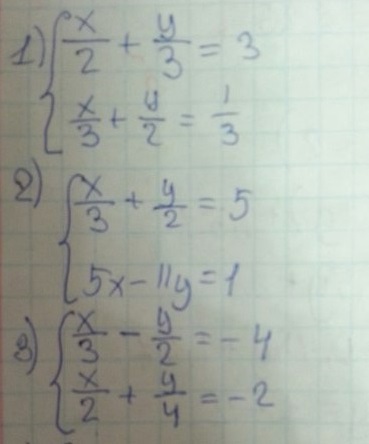 1) { x/2 + y/3 = 3
x/3 + y/2 = 1/3
2) { x/3 + y/2 = 5
5x - 11y = 1
3) { x/3 - y/2 = -4
x/2 + y/4 = -2